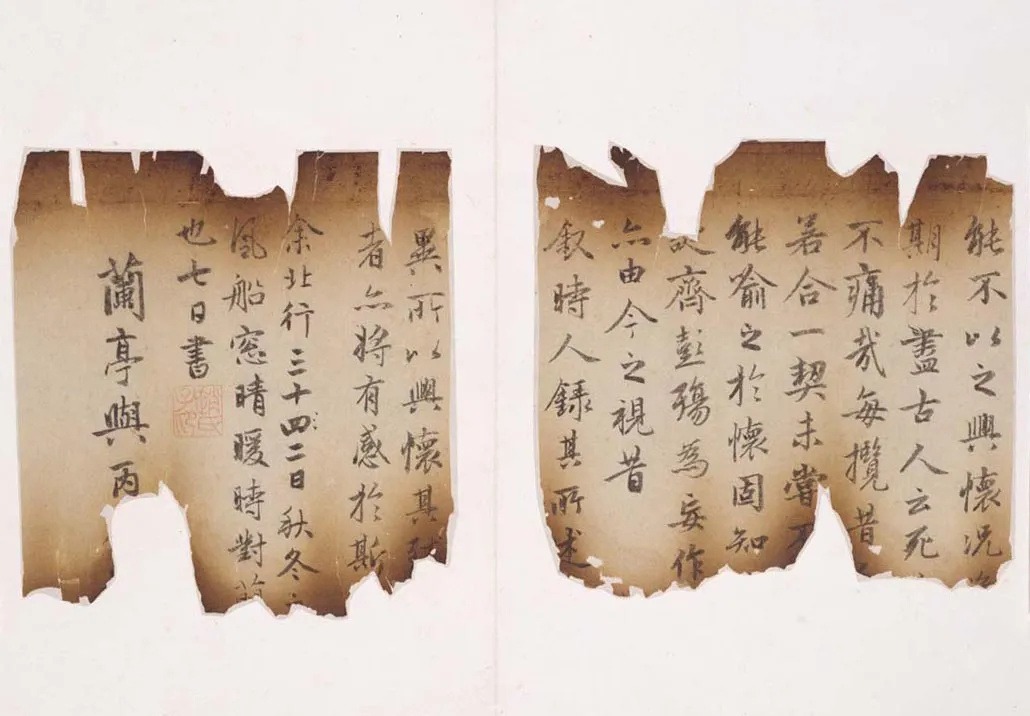 能不以之興懷況
期於盡古人云死
不痛哉每攬昔
若合一契未嘗不
能喻之於懷固知
齊彭殤為妄作
亦由今之視昔
敘時人錄其所述
異所以興懷其致
者亦將有感於斯
余北行三十四二日秋冬
風船窓晴暖時對
也七日書
趙氏子昂
蘭亭與丙